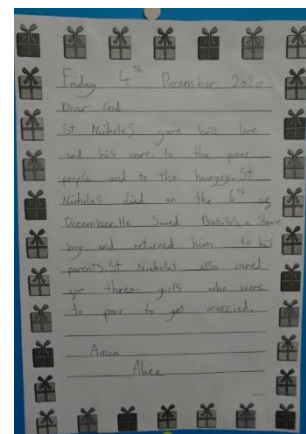 Friday 4th December 2020
Dear God
St Nicholas gave his love
and his care to the poor
people and to the hungry. St
Nicholas died on the 6th of
December. He Saved Basilos, a Slave
boy and returned him to his
parents. St Nicholas also cared
for three girls who were
to poor to get married.
Amen
Alice